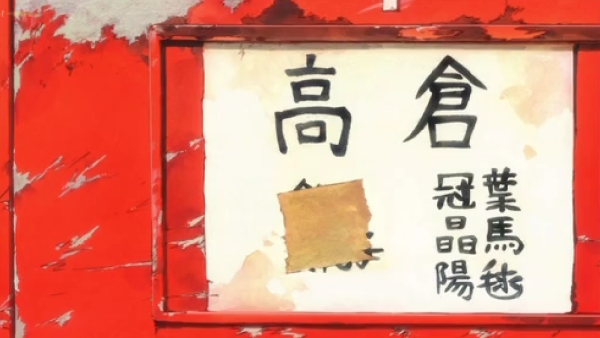 高倉
冠葉
晶馬
陽毬